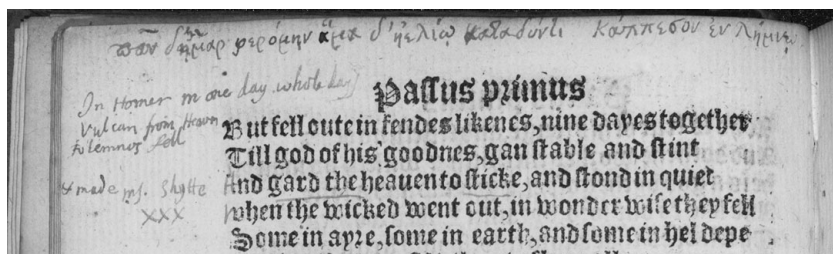 πᾶν δ' ἦμαρ φερόμην ἅμα δ' ἠελίῳ καταδύντι κάππεσον ἐν Λήμνῳ
In Homer in one day whole day
Vulcan from Heaven
to lemnos fell
& made
XXX
Passus primus
But fell oute in fendes likenes, nine dayes together
Till god of his goodnes, gan stable and stint
And gard the heauen to sticke, and stond in quiet
when the wicked went out, in wonder wise they fell
Some in ayre, some in earth, and some in hel depe